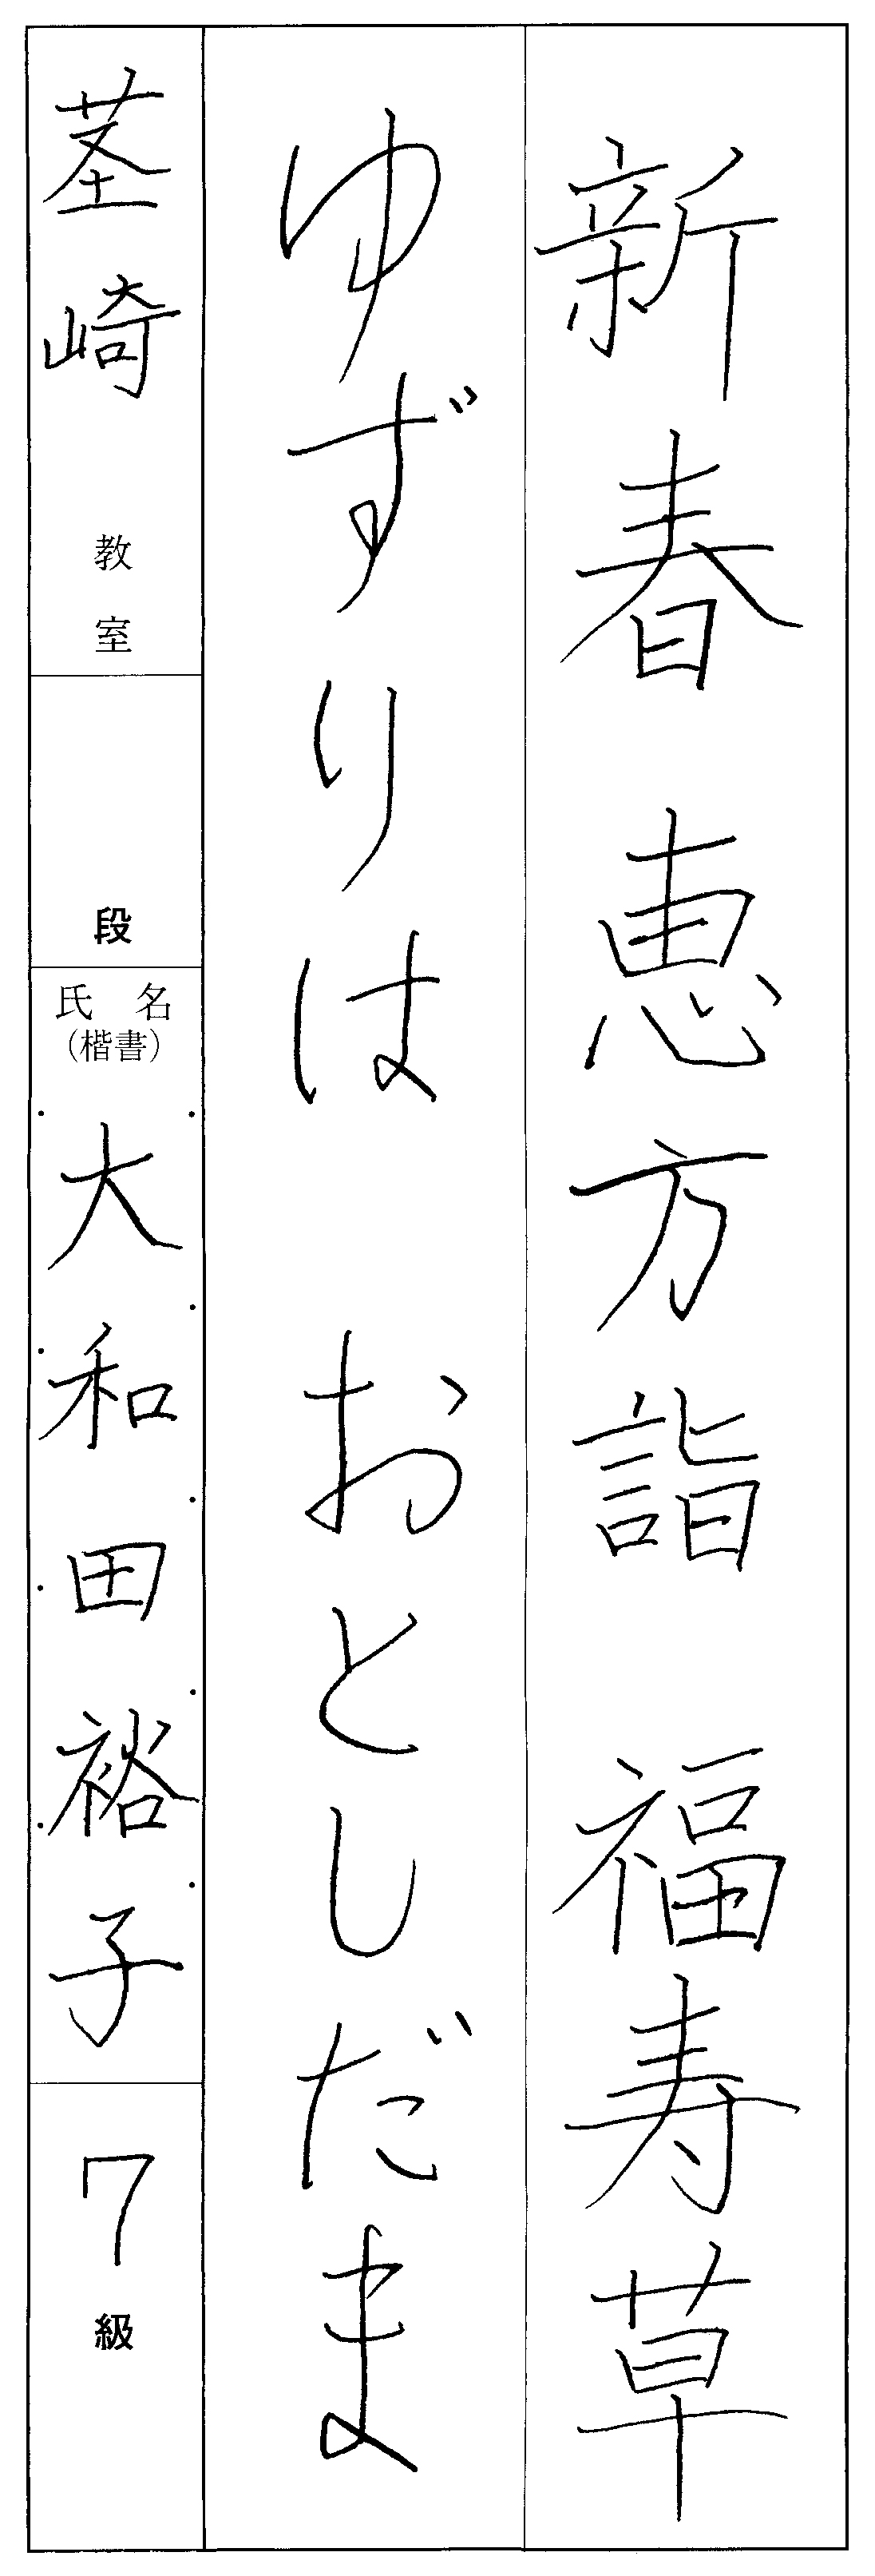 新春 恵方詣 福寿草
ゆずりは おとしだま
茎崎 教室
段
氏名
(楷書)
大和田裕子
7級